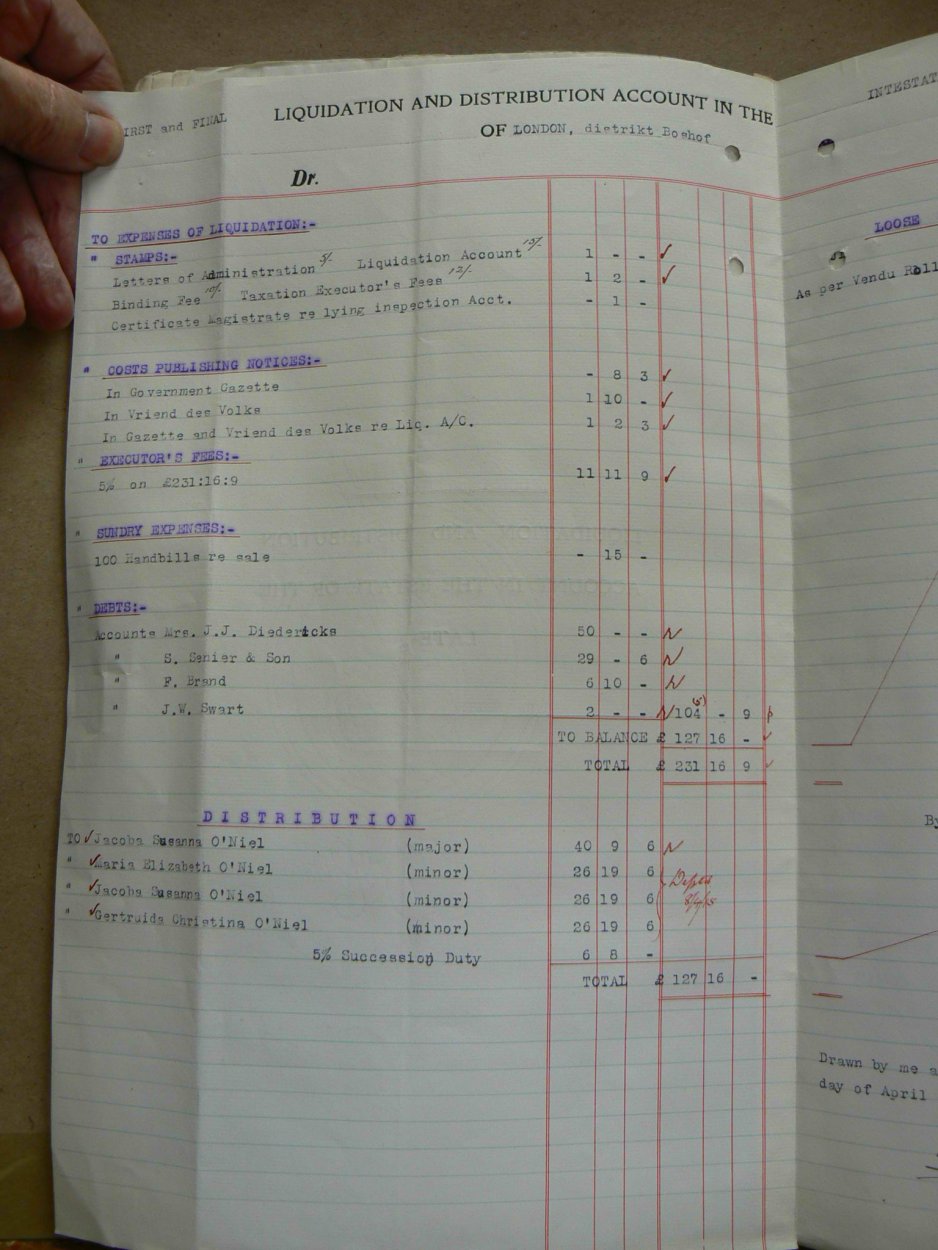 IRST and FINAL LIQUIDATION AND DISTRIBUTION ACCOUNT IN THE
OF LONDON, distrikt Boshof
Dr.
TO EXPENSES OF LIQUIDATION:-
" STAMPS:-
Letters of Administration 5/- Liquidation Account 15/- 1 - -
Binding Fee 10/- Taxation Executor's Fees 12/- 1 2 -
Certificate Magistrate re lying inspection Acct. - 1 -
" COSTS PUBLISHING NOTICES:-
In Government Gazette - 8 3
In Vriend des Volks 1 10 -
In Gazette and Vriend des Volks re Liq. A/C. 1 2 3
" EXECUTOR'S FEES:-
5% on £231:16:9 11 11 9
" SUNDRY EXPENSES:-
100 Handbills re sale - 15 -
" DEBTS:-
Accounts Mrs. J.J. Diedericks 50 - -
" S. Senier & Son 29 - 6
" F. Brand 6 10 -
" J.W. Swart 2 - - 104 (5) - 9
TO BALANCE £ 127 16 -
TOTAL £ 231 16 9
DISTRIBUTION
TO Jacoba Susanna O'Niel (major) 40 9 6
" Maria Elizabeth O'Niel (minor) 26 19 6
" Jacoba Susanna O'Niel (minor) 26 19 6
" Gertruida Christina O'Niel (minor) 26 19 6
5% Succession Duty 6 8 -
TOTAL £ 127 16 -
INTESTAT
LOOSE
As per Vendu Roll
By
Drawn by me a
day of April